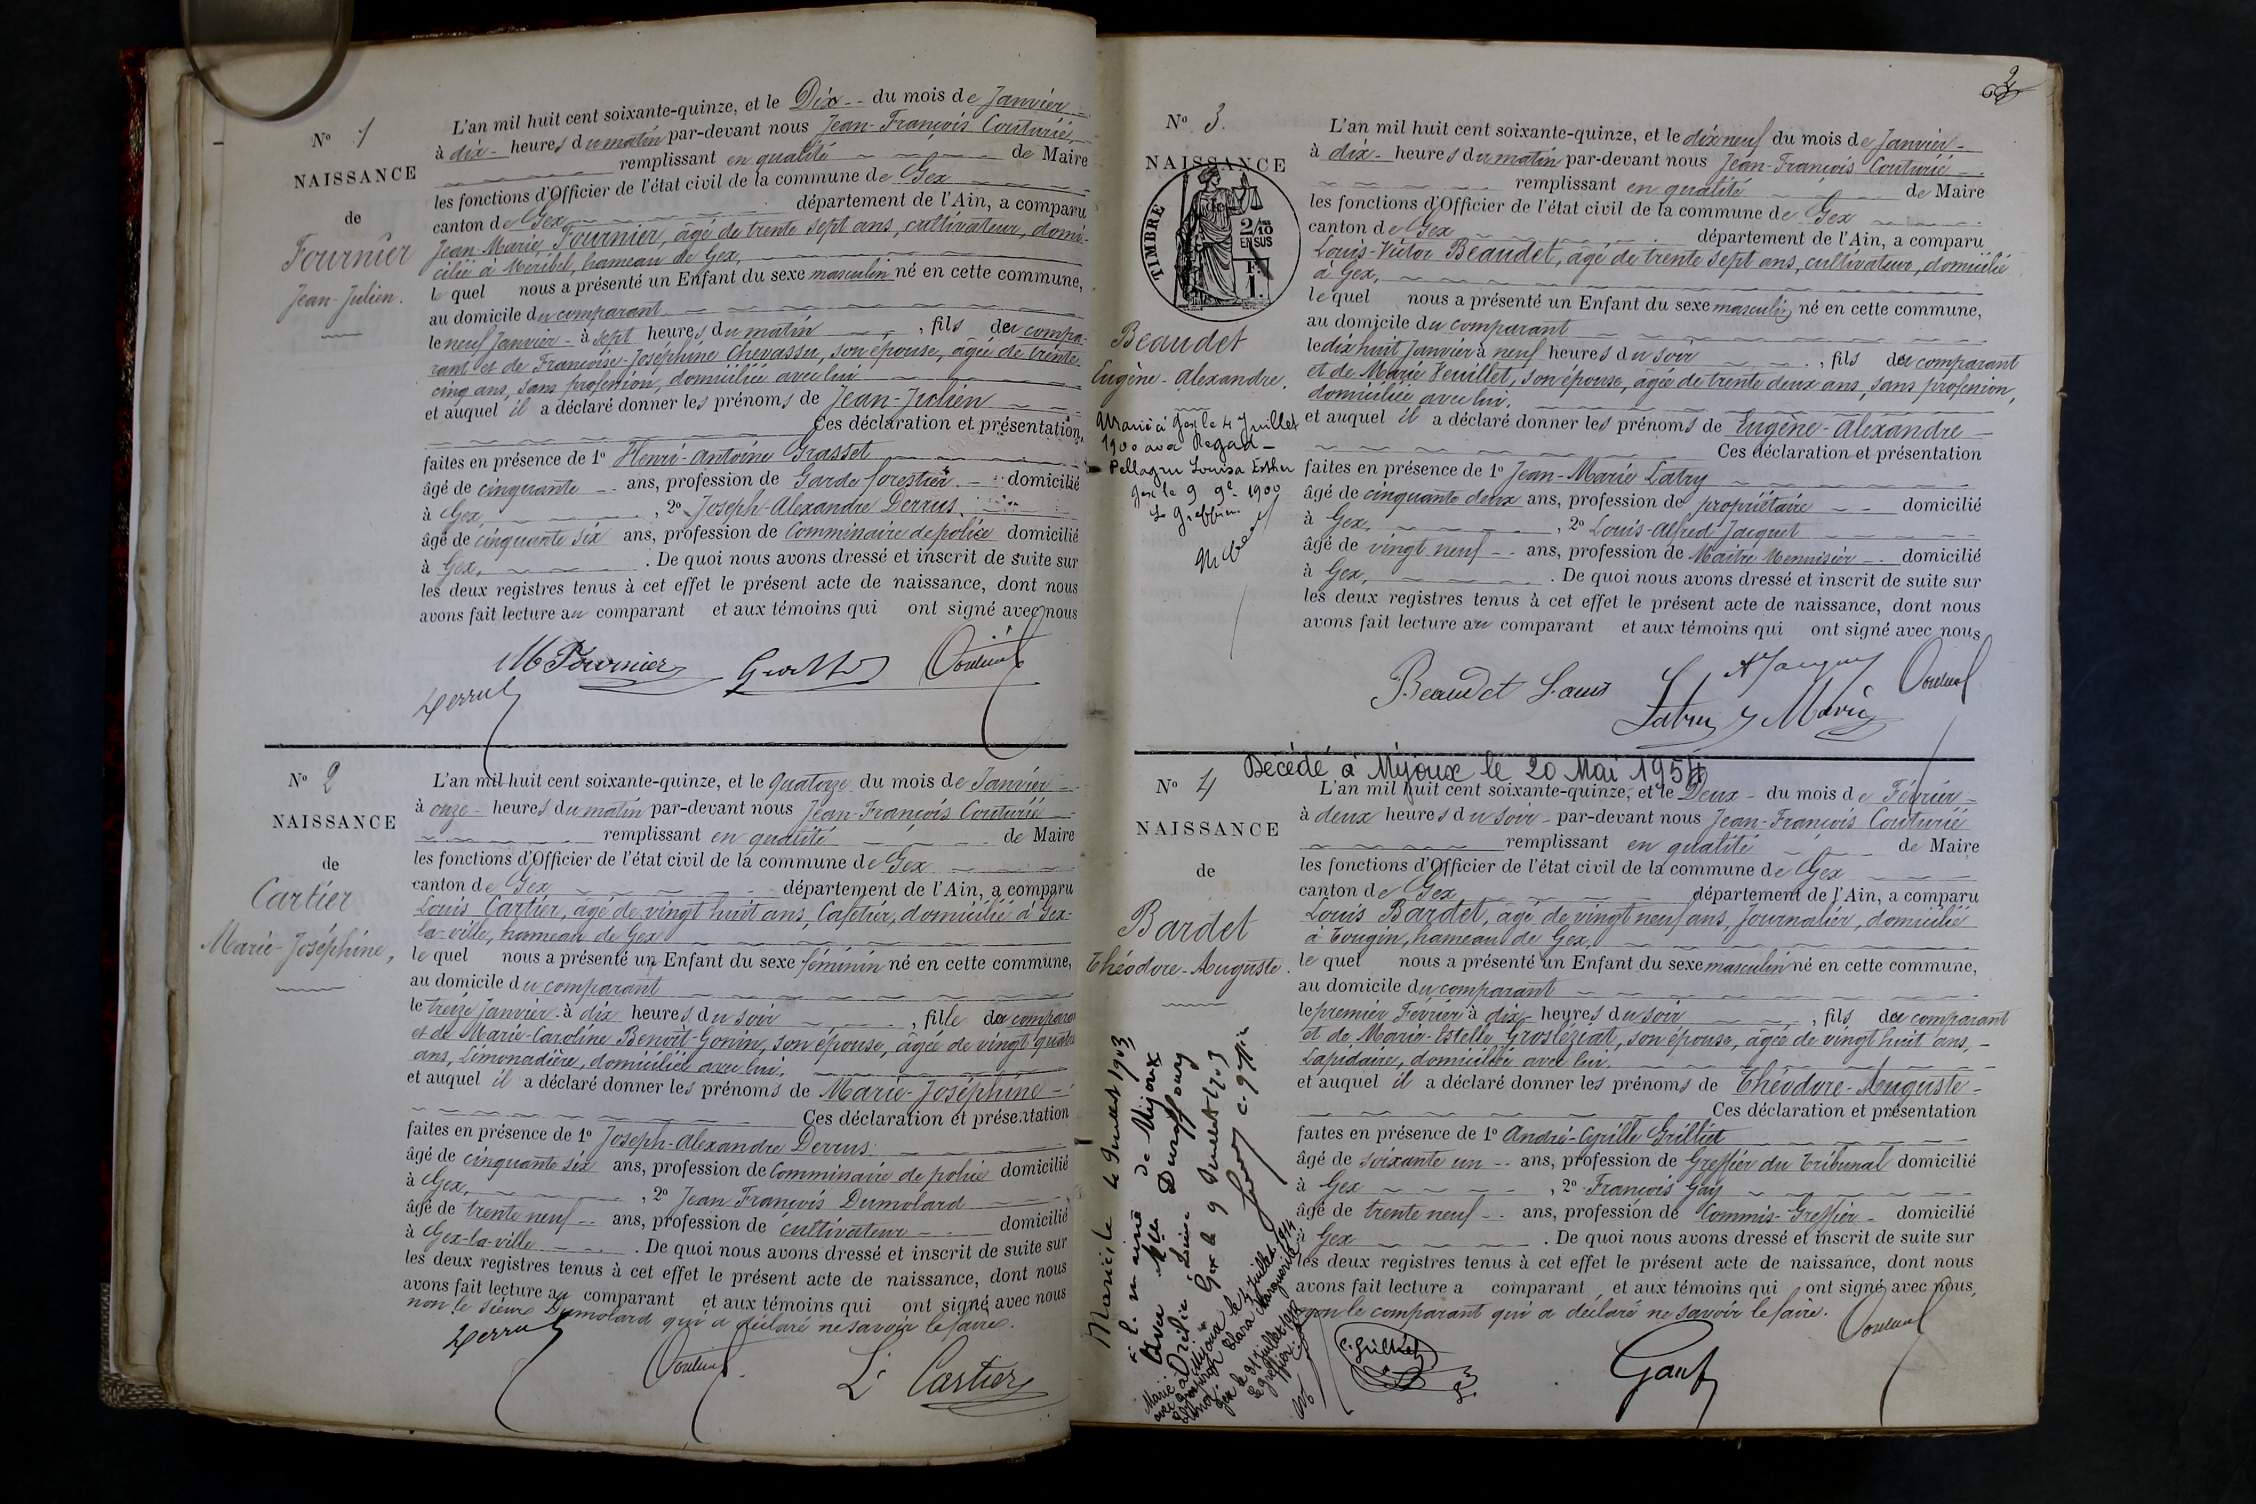 Nº 1
NAISSANCE
de
Fournier
Jean-Julien.
L'an mil huit cent soixante-quinze, et le Dix -- du mois de Janvier
à dix - heures du matin par-devant nous Jean-François Couturié,
remplissant en qualité de Maire
les fonctions d'Officier de l'état civil de la commune de Gex
canton de Gex département de l'Ain, a comparu
Jean Marie Fournier, âgé de trente sept ans, cultivateur, domi-
cilié à Meribel, hameau de Gex,
le quel nous a présenté un Enfant du sexe masculin né en cette commune,
au domicile du comparant
le neuf Janvier - à sept heures du matin , fils du compa-
rant et de Françoise-Joséphine Chevassu, son épouse, âgée de trente
cinq ans, sans profession, domiciliée avec lui
et auquel il a déclaré donner les prénoms de Jean-Julien
Ces déclaration et présentation,
faites en présence de 1º Henri-Antoine Grasset
âgé de cinquante -- ans, profession de Garde forestier - domicilié
à Gex, , 2º Joseph-Alexandre Derrus
âgé de cinquante six ans, profession de Commissaire de police domicilié
à Gex, . De quoi nous avons dressé et inscrit de suite sur
les deux registres tenus à cet effet le présent acte de naissance, dont nous
avons fait lecture au comparant et aux témoins qui ont signé avec nous
M Fournier
Derrus
Nº 2
NAISSANCE
de
Cartier
Marie-Joséphine,
L'an mil huit cent soixante-quinze, et le quatorze du mois de Janvier
à onze - heures du matin par-devant nous Jean-François Couturié
remplissant en qualité de Maire
les fonctions d'Officier de l'état civil de la commune de Gex
canton de Gex département de l'Ain, a comparu
Louis Cartier, âgé de vingt huit ans, Cafetier, domicilié à Gex-
la-ville, hameau de Gex
le quel nous a présenté un Enfant du sexe féminin né en cette commune,
au domicile du comparant
le treize Janvier - à dix heures du soir , fille du comparant
et de Marie-Caroline Benoit-Gonin, son épouse, âgée de vingt quatre
ans, Limonadière, domiciliée avec lui.
et auquel il a déclaré donner les prénoms de Marie-Joséphine -
Ces déclaration et présentation
faites en présence de 1º Joseph-Alexandre Derrus
âgé de cinquante six ans, profession de Commissaire de police domicilié
à Gex, , 2º Jean François Dumolard
âgé de trente neuf -- ans, profession de cultivateur domicilié
à Gex-la-ville . De quoi nous avons dressé et inscrit de suite sur
les deux registres tenus à cet effet le présent acte de naissance, dont nous
avons fait lecture au comparant et aux témoins qui ont signé avec nous
non le sieur Dumolard qui a déclaré ne savoir le faire.
Derrus
L. Cartier
2
Nº 3.
NAISSANCE
TIMBRE
2/10
EN SUS
Beaudet
Eugène-Alexandre.
Marié à Gex le 4 Juillet
1900 avec Regard -
Pellagru Louisa Esther
Gex le 9 1900
Le greffier
L'an mil huit cent soixante-quinze, et le dix neuf du mois de Janvier -
à dix - heures du matin par-devant nous Jean-François Couturié
remplissant en qualité de Maire
les fonctions d'Officier de l'état civil de la commune de Gex
canton de Gex département de l'Ain, a comparu
Louis-Victor Beaudet, âgé de trente sept ans, cultivateur, domicilié
à Gex,
le quel nous a présenté un Enfant du sexe masculin né en cette commune,
au domicile du comparant
le dix huit Janvier à neuf heures du soir , fils du comparant
et de Marie Veuillet, son épouse, âgée de trente deux ans, sans profession,
domiciliée avec lui.
et auquel il a déclaré donner les prénoms de Eugène-Alexandre -
Ces déclaration et présentation
faites en présence de 1º Jean-Marie Latry
âgé de cinquante deux ans, profession de propriétaire -- domicilié
à Gex, , 2º Louis-Alfred Jacquet
âgé de vingt neuf -- ans, profession de Maître Menuisier - domicilié
à Gex, . De quoi nous avons dressé et inscrit de suite sur
les deux registres tenus à cet effet le présent acte de naissance, dont nous
avons fait lecture au comparant et aux témoins qui ont signé avec nous
Beaudet Louis
Décédé à Mijoux le 20 Mai 1954
Nº 4
NAISSANCE
de
Bardet
Théodore-Auguste.
Marié le 4 Juillet 1903
à la mairie de Mijoux
avec Mlle Duraffourg
Gex le 9 Juillet 1903
L'an mil huit cent soixante-quinze, et le Deux - du mois de Février -
à deux heures du soir - par-devant nous Jean-François Couturié
remplissant en qualité de Maire
les fonctions d'Officier de l'état civil de la commune de Gex
canton de Gex département de l'Ain, a comparu
Louis Bardet, âgé de vingt neuf ans, Journalier, domicilié
à Tougin, hameau de Gex,
le quel nous a présenté un Enfant du sexe masculin né en cette commune,
au domicile du comparant
le premier Février à dix - heures du soir , fils du comparant
et de Marie-Estelle Grosléziat, son épouse, âgée de vingt huit ans, -
Lapidaire, domiciliée avec lui.
et auquel il a déclaré donner les prénoms de Théodore-Auguste -
Ces déclaration et présentation
faites en présence de 1º André-Cyrille Grilliet
âgé de soixante un -- ans, profession de Greffier du Tribunal domicilié
à Gex , 2º François Gay
âgé de trente neuf -- ans, profession de Commis-Greffier - domicilié
à Gex . De quoi nous avons dressé et inscrit de suite sur
les deux registres tenus à cet effet le présent acte de naissance, dont nous
avons fait lecture a comparant et aux témoins qui ont signé avec nous,
non le comparant qui a déclaré ne savoir le faire.